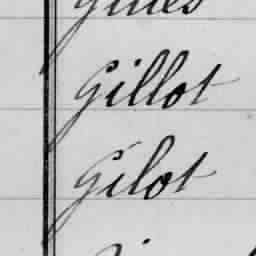 Gillot
Gilot